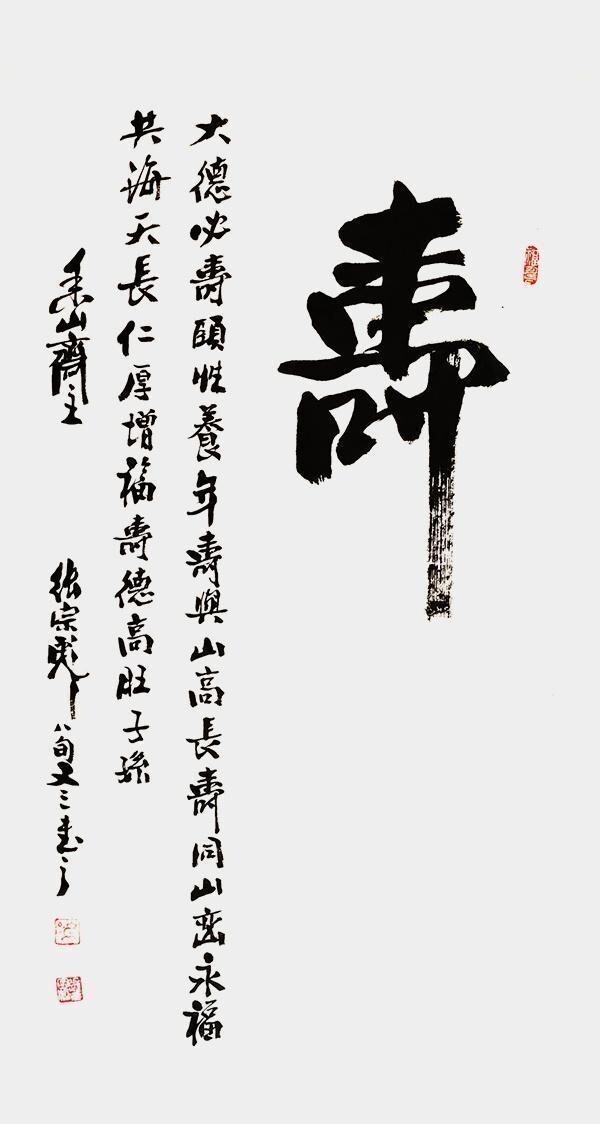 壽
大德必壽頤性養年壽與山高長壽同山峦永福
共海天長仁厚增福壽德高旺子孫
山齋主 張宗彪 八旬又三書之